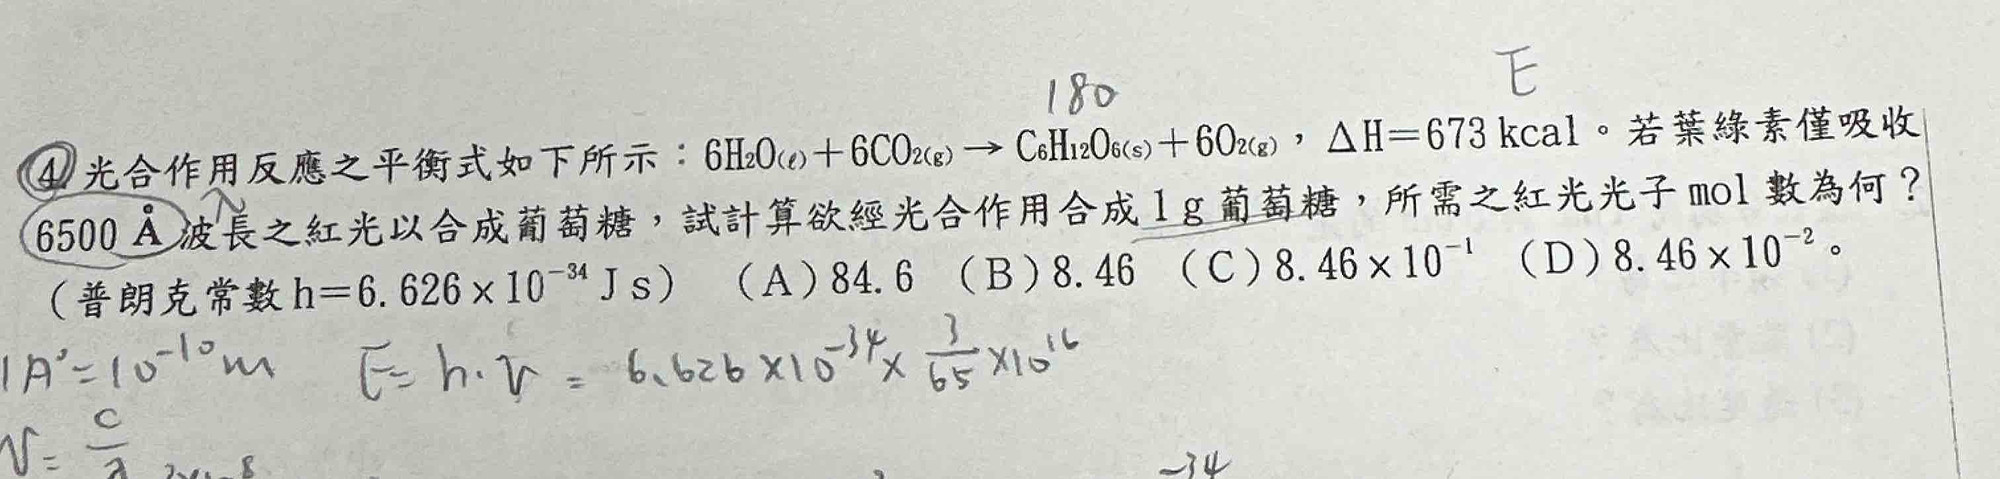 E
180
4. 光合作用反應之平衡式如下所示：6H₂O(ℓ)＋6CO₂(g)→C₆H₁₂O₆(s)＋6O₂(g)，ΔH＝673 kcal。若葉綠素僅吸收
6500 Å 波長之紅光以合成葡萄糖，試計算欲經光合作用合成 1 g 葡萄糖，所需之紅光光子 mol 數為何？
（普朗克常數 h＝6.626×10⁻³⁴ J s） （A）84.6 （B）8.46 （C）8.46×10⁻¹ （D）8.46×10⁻²。
1A°=10⁻¹⁰m E=h·ν = 6.626×10⁻³⁴× 3/65 ×10¹⁶
ν= c/λ
-34